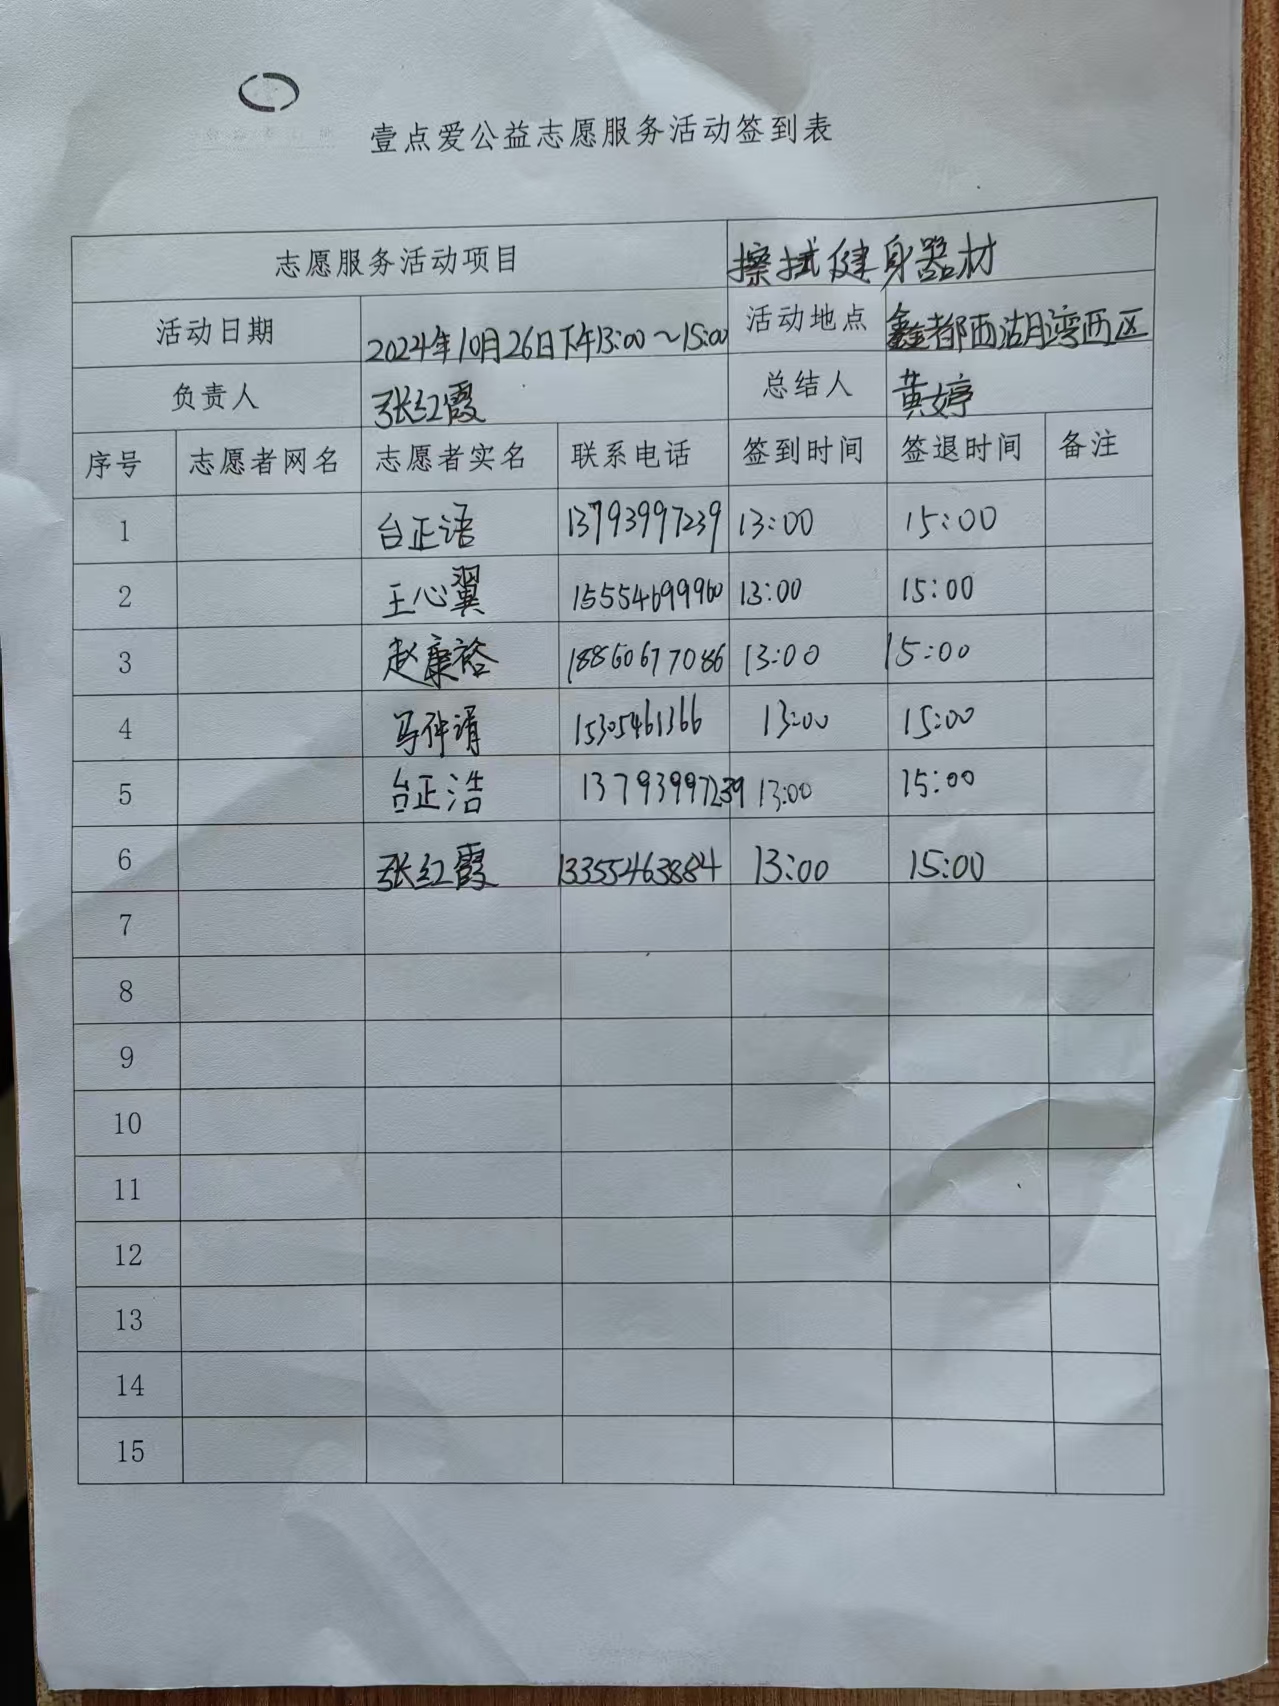 壹点爱公益志愿服务活动签到表
志愿服务活动项目 擦拭健身器材
活动日期 2024年10月26日下午13:00~15:00 活动地点 鑫都西湖月湾西区
负责人 张红霞 总结人 黄婷
序号 志愿者网名 志愿者实名 联系电话 签到时间 签退时间 备注
1 台正语 13793997239 13:00 15:00
2 王心翼 15554699960 13:00 15:00
3 赵康裕 18860677086 13:00 15:00
4 马仲谞 15305461366 13:00 15:00
5 台正浩 13793997239 13:00 15:00
6 张红霞 13355463884 13:00 15:00
7
8
9
10
11
12
13
14
15